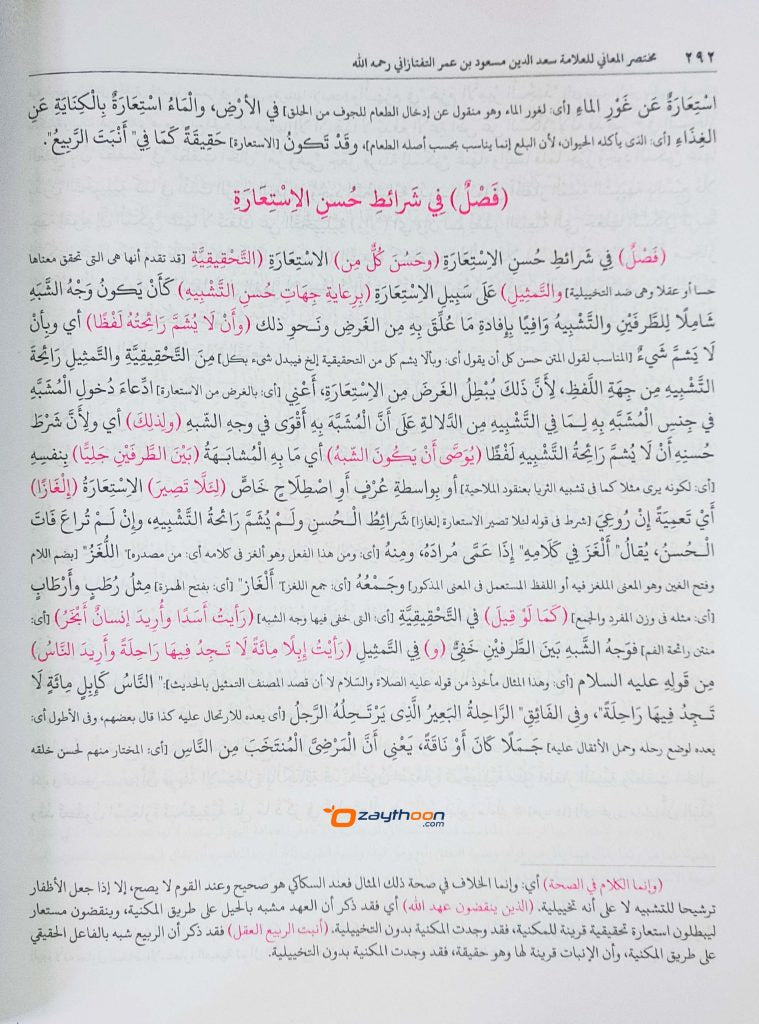 ٢٩٢ مختصر المعاني للعلامة سعد الدين مسعود بن عمر التفتازاني رحمه الله
اسْتِعَارَةٌ عَن غَوْرِ الماءِ [أى: لغور الماء وهو منقول عن إدخال الطعام للجوف من الحلق] في الأرْضِ، والْمَاءُ اسْتِعَارَةٌ بِالْكِنَايَةِ عَنِ
الغِذَاءِ [أى: الذى يأكله الحيوان، لأن البلع إنما يناسب بحسب أصله الطعام]، وقَدْ تَكُونُ [الاستعارة] حَقِيقَةً كَمَا فِي" أَنْبَتَ الرَّبِيعُ".
(فَصْلٌ) فِي شَرائطِ حُسنِ الاِسْتِعَارَةِ
(فَصْلٌ) فِي شَرائطِ حُسنِ الاِسْتِعَارَةِ (وحَسُنَ كُلٌّ مِن) الاسْتِعَارَةِ (التَّحْقِيقِيَّةِ [قد تقدم أنها هى التى تحقق معناها
حسا أو عقلا وهى ضد التخييلية] والتَّمثِيلِ) عَلَى سَبِيلِ الاِسْتِعَارَةِ (بِرِعايةِ جِهَاتِ حُسنِ التَّشْبِيهِ) كَأَنْ يَكُونُ وَجْهُ الشَّبَهِ
شَامِلًا لِلطَّرفَيْنِ والتَّشْبِيهُ وَافِيًا بِإفادةِ مَا عُلِّقَ بِهِ مِن الغَرضِ ونَحوِ ذلك (وأَنْ لَا يُشَمَّ رَائِحَتُهُ لَفْظًا) أي وبِأنْ
لَا يَشمَّ شَيءٌ [المناسب لقول المتن حسن كل أن يقول أى: وبألا يشم كل من التحقيقية إلخ فيبدل شىء بكل] مِنَ التَّحْقِيقِيَّةِ والتَّمثِيلِ رَائِحَةَ
التَّشْبِيهِ مِن جِهَةِ اللَّفظِ، لِأَنَّ ذَلِكَ يُبْطِلُ الغَرَضَ مِنَ الاِسْتِعَارَةِ، أَعْنِي [أى: بالغرض من الاستعارة] ادِّعاءَ دُخولِ الْمُشَبَّهِ
في جِنسِ الْمُشَبَّهِ بِهِ لِـمَا فِي التَّشْبِيهِ مِن الدَّلالةِ عَلَى أَنَّ الْمُشَبَّهَ بِهِ أَقْوَى فِي وجهِ الشَّبهِ (ولِذلِكَ) أي ولِأنَّ شَرْطَ
حُسنِهِ أَنْ لَا يُشَمَّ رَائحَةَ التَّشْبِيهِ لَفْظًا (يُوَصَّى أَنْ يَكُونَ الشَّبهُ) أي مَا بِهِ الْمُشَابَـهَةُ (بَيْنَ الطَّرفَيْنِ جَلِيًّا) بِنفسِهِ
[أى: لكونه يرى مثلا كما فى تشبيه الثريا بعنقود الملاحية] أو بِواسطةِ عُرْفٍ أَو اصْطِلَاحٍ خَاصٍّ (لِئَلَّا تَصِيرَ) الاِسْتِعَارَةُ (إِلْغَازًا)
أَيْ تَعمِيَةً إِنْ رُوعِيَ [شرط فى قوله لئلا تصير الاستعارة إلغازا] شَرائِطُ الْـحُسنِ ولَـمْ يُشَمَّ رَائحةُ التَّشْبِيهِ، وإِنْ لَـمْ تُراعَ فَاتَ
الْـحُسنُ، يُقَالُ" أَلْغَزَ فِي كَلَامِهِ" إِذَا عَمَّى مُرادَهُ، ومِنهُ [أى: ومن هذا الفعل وهو ألغز فى كلامه أى: من مصدره]" اللُّغَزُ" [بضم اللام
وفتح الغين وهو المعنى الملغز فيه أو اللفظ المستعمل فى المعنى المذكور] وجَـمْعُهُ [أى: جمع اللغز]" أَلْغَازٌ" [أى: بفتح الهمزة] مِثْلُ رُطَبٍ وأَرْطَابٍ
[أى: مثله فى وزن المفرد والجمع] (كَمَا لَوْ قِيلَ) فِي التَّحْقِيقِيَّةِ [أى: التى خفى فيها وجه الشبه] (رَأيتُ أَسَدًا وأُرِيدَ إنسانٌ أَبْخَرُ) [أى:
منتن رائحة الفم] فوَجهُ الشَّبَهِ بَينَ الطَّرفَيْنِ خَفِيٌّ (و) فِي التَّمثِيلِ (رَأيْتُ إِبِلًا مِائَةً لَا تَـجِدُ فِيهَا رَاحِلَةً وأُرِيدَ النَّاسُ)
مِن قَولِهِ عليه السلام [أى: وهذا المثال مأخوذ من قوله عليه الصلاة والسلام لا أن قصد المصنف التمثيل بالحديث]:" النَّاسُ كَإِبِلٍ مِائَةٍ لَا
تَـجِدُ فِيهَا رَاحِلَةً"، وفِى الفَائِقِ" الرَّاحِلَةُ البَعِيرُ الَّذِى يَرْتَـحِلُهُ الرَّجلُ [أى يعده للارتحال عليه كذا قال بعضهم، وفى الأطول أى:
يعده لوضع رحله وحمل الأثقال عليه] جَـمَلًا كَانَ أَوْ نَاقَةً، يَعْنِي أَنَّ الْمَرْضِىَّ الْمُنْتَخَبَ مِن النَّاسِ [أى: المختار منهم لحسن خلقه
zaythoon.com
(وإنما الكلام في الصحة) أي: وإنما الخلاف في صحة ذلك المثال فعند السكاكي هو صحيح وعند القوم لا يصح، إلا إذا جعل الأظفار
ترشيحا للتشبيه لا على أنه تخييلية. (الذين ينقضون عهد الله) أي فقد ذكر أن العهد مشبه بالحبل على طريق المكنية، وينقضون مستعار
ليبطلون استعارة تحقيقية قرينة للمكنية، فقد وجدت المكنية بدون التخييلية. (أنبت الربيع العقل) فقد ذكر أن الربيع شبه بالفاعل الحقيقي
على طريق المكنية، وأن الإنبات قرينة لها وهو حقيقة، فقد وجدت المكنية بدون التخييلية.